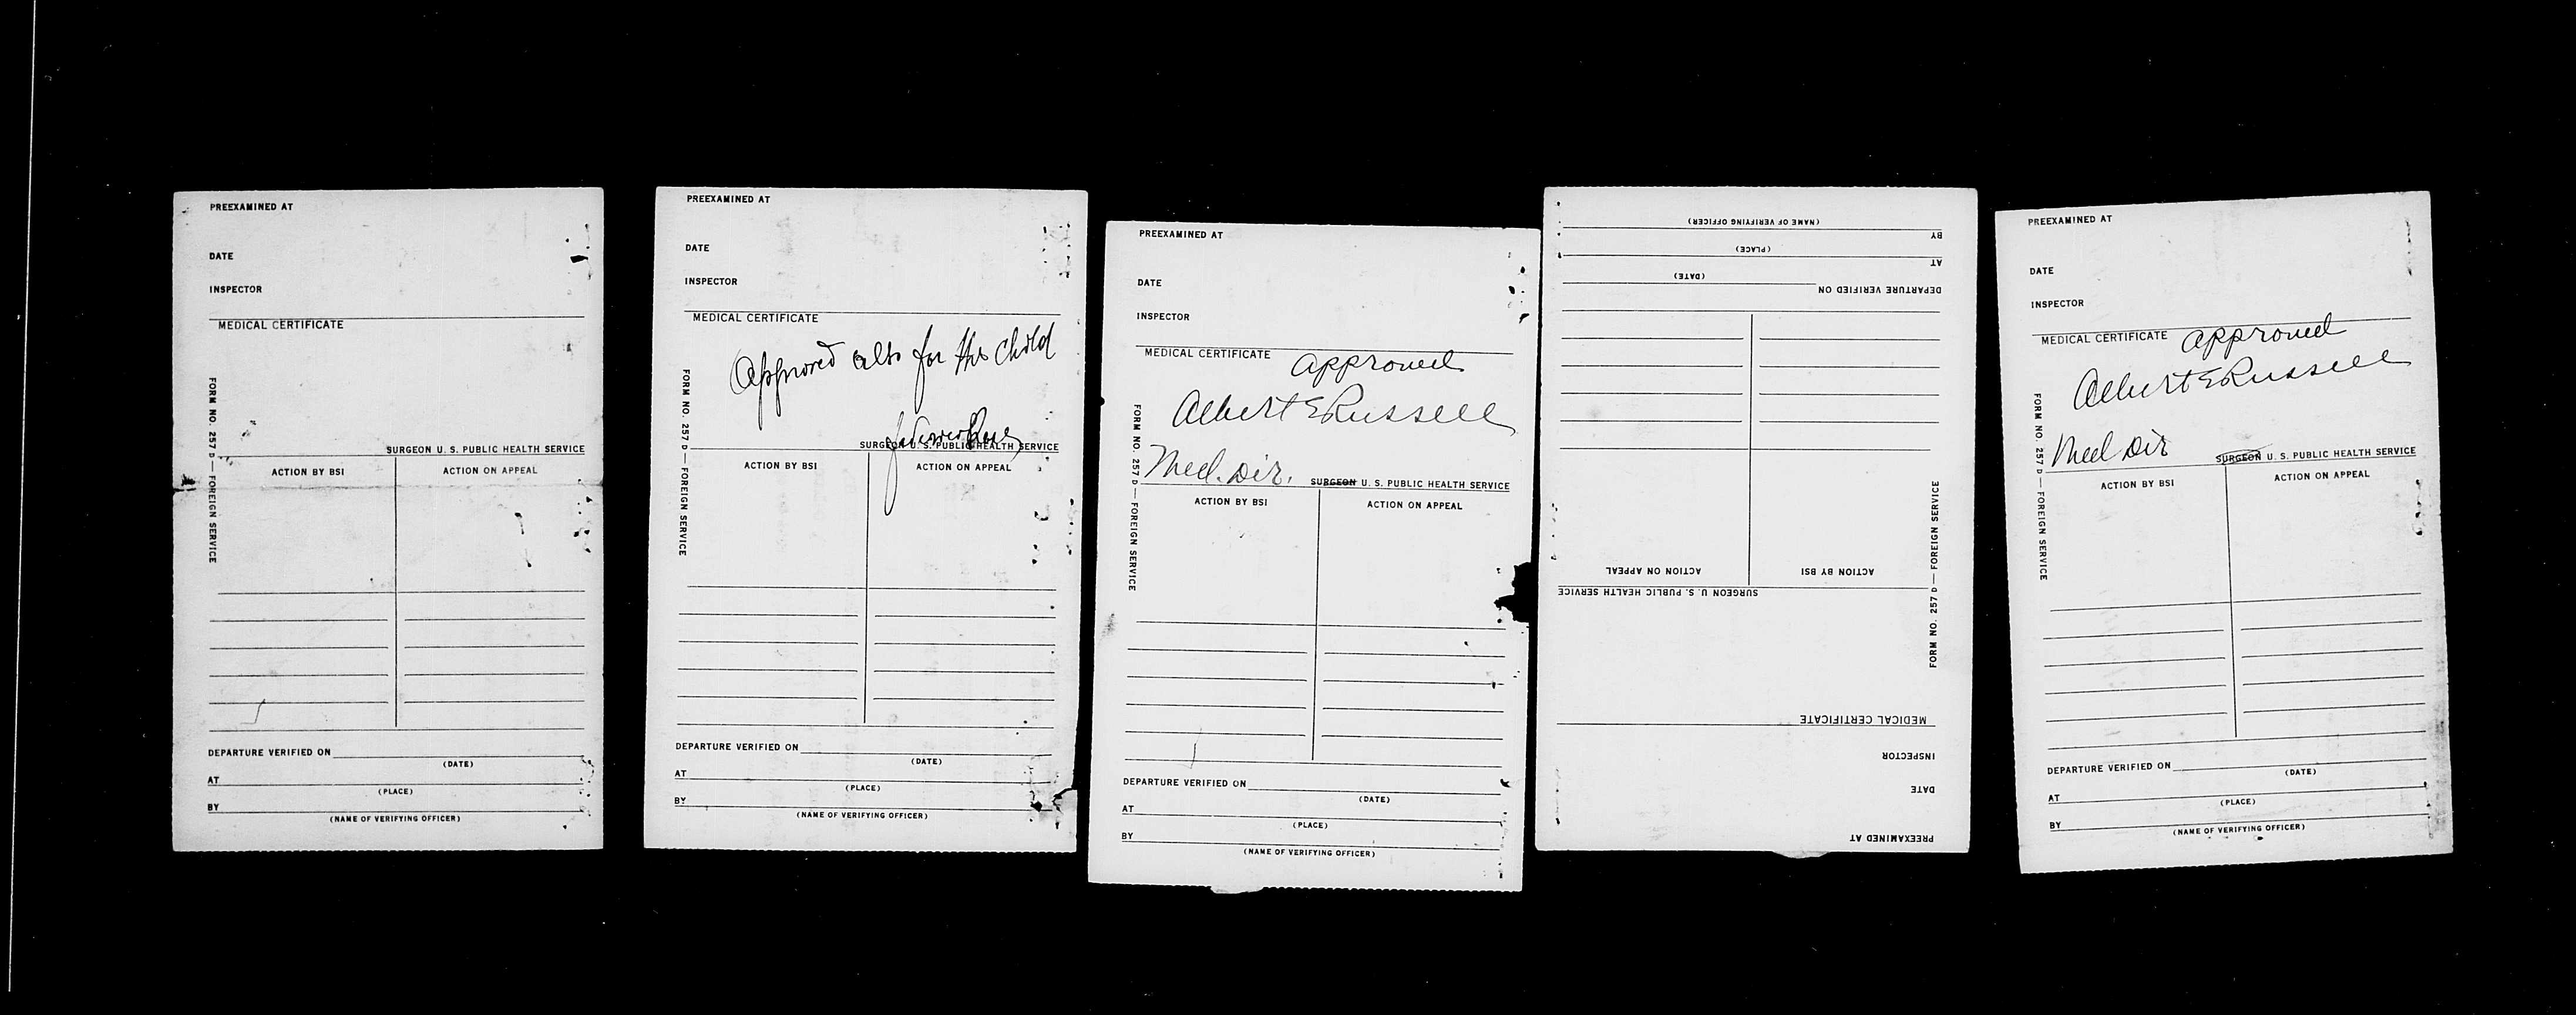 PREEXAMINED AT
DATE
INSPECTOR
MEDICAL CERTIFICATE
SURGEON U. S. PUBLIC HEALTH SERVICE
ACTION BY BSI ACTION ON APPEAL
FORM NO. 257 D — FOREIGN SERVICE
DEPARTURE VERIFIED ON
(DATE)
AT
(PLACE)
BY
(NAME OF VERIFYING OFFICER)
PREEXAMINED AT
DATE
INSPECTOR
MEDICAL CERTIFICATE
Approved also for this child
SURGEON U. S. PUBLIC HEALTH SERVICE
ACTION BY BSI ACTION ON APPEAL
FORM NO. 257 D — FOREIGN SERVICE
DEPARTURE VERIFIED ON
(DATE)
AT
(PLACE)
BY
(NAME OF VERIFYING OFFICER)
PREEXAMINED AT
DATE
INSPECTOR
MEDICAL CERTIFICATE approved
Albert E Russell
Med. Dir. SURGEON U. S. PUBLIC HEALTH SERVICE
ACTION BY BSI ACTION ON APPEAL
FORM NO. 257 D — FOREIGN SERVICE
DEPARTURE VERIFIED ON
(DATE)
AT
(PLACE)
BY
(NAME OF VERIFYING OFFICER)
PREEXAMINED AT
DATE
INSPECTOR
MEDICAL CERTIFICATE
SURGEON U. S. PUBLIC HEALTH SERVICE
ACTION BY BSI ACTION ON APPEAL
FORM NO. 257 D — FOREIGN SERVICE
DEPARTURE VERIFIED ON
(DATE)
AT
(PLACE)
BY
(NAME OF VERIFYING OFFICER)
PREEXAMINED AT
DATE
INSPECTOR
MEDICAL CERTIFICATE approved
Albert E Russell
Med Dir SURGEON U. S. PUBLIC HEALTH SERVICE
ACTION BY BSI ACTION ON APPEAL
FORM NO. 257 D — FOREIGN SERVICE
DEPARTURE VERIFIED ON
(DATE)
AT
(PLACE)
BY
(NAME OF VERIFYING OFFICER)